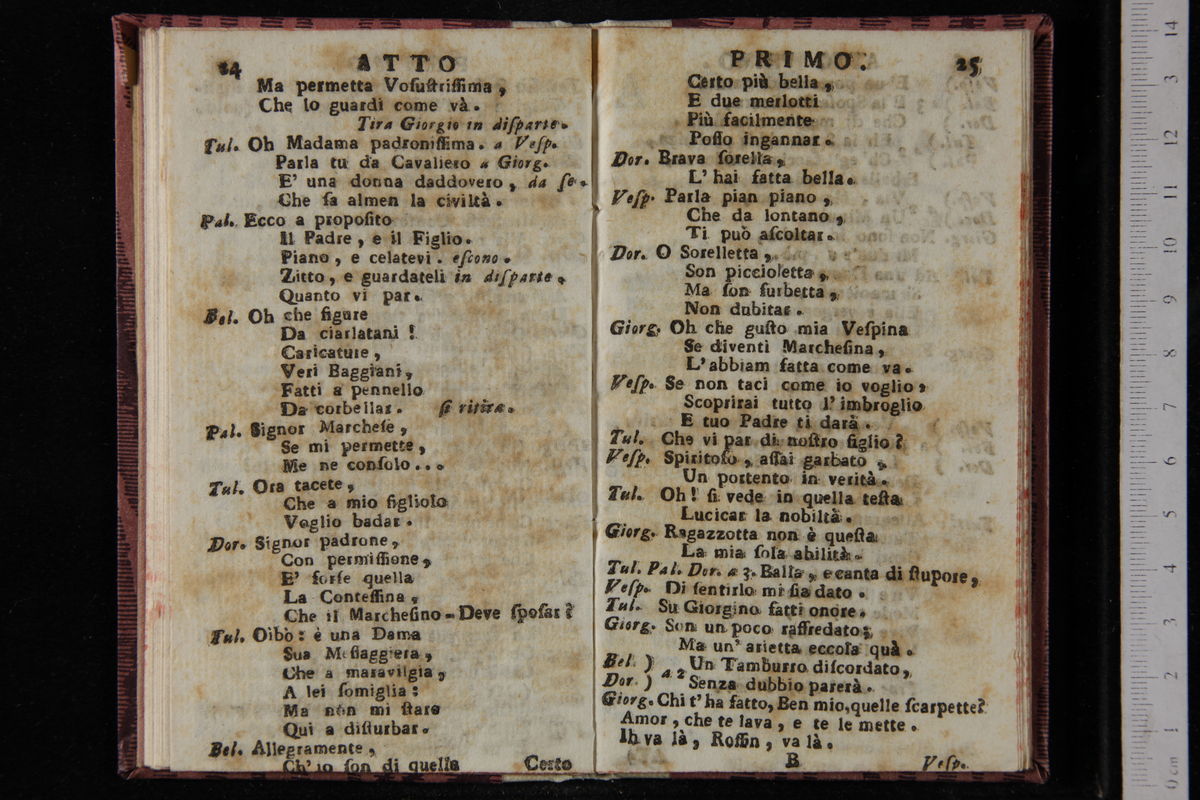 24 ATTO
Ma permetta Vosustrissima,
Che lo guardi come và.
Tira Giorgio in disparte.
Tul. Oh Madama padronissima. a Vesp.
Parla tu da Cavaliero a Giorg.
E' una donna daddovero, da se.
Che sa almen la civiltà.
Pal. Ecco a proposito
Il Padre, e il Figlio.
Piano, e celatevi. escono.
Zitto, e guardateli in disparte.
Quanto vi par.
Bel. Oh che figure
Da ciarlatani!
Caricature,
Veri Baggiani,
Fatti a pennello
Da corbellar. si ritira.
Pal. Signor Marchese,
Se mi permette,
Me ne consolo...
Tul. Ora tacete,
Che a mio figliolo
Voglio badar.
Dor. Signor padrone,
Con permissione,
E' forse quella
La Contessina,
Che il Marchesino - Deve sposar?
Tul. Oibò: è una Dama
Sua Messaggiera,
Che a maravilgia,
A lei somiglia:
Ma non mi stare
Qui a disturbar.
Bel. Allegramente,
Ch' io son di quella
Certo
PRIMO. 25
Certo più bella,
E due merlotti
Più facilmente
Posso ingannar.
Dor. Brava sorella,
L' hai fatta bella.
Vesp. Parla pian piano,
Che da lontano,
Ti può ascoltar.
Dor. O Sorelletta,
Son piccioletta,
Ma son furbetta,
Non dubitar.
Giorg. Oh che gusto mia Vespina
Se diventi Marchesina,
L'abbiam fatta come va.
Vesp. Se non taci come io voglio,
Scoprirai tutto l' imbroglio
E tuo Padre ti darà.
Tul. Che vi par di nostro figlio?
Vesp. Spiritoso, assai garbato,
Un portento in verità.
Tul. Oh! si vede in quella testa
Lucicar la nobiltà.
Giorg. Ragazzotta non è questa
La mia sola abilità.
Tul. Pal. Dor. a 3. Balla, e canta di stupore,
Vesp. Di sentirlo mi sia dato.
Tul. Su Giorgino fatti onore.
Giorg. Son un poco raffredato;
Ma un' arietta eccola quà.
Bel. ) a 2 Un Tamburro discordato,
Dor. ) Senza dubbio parerà.
Giorg. Chi t' ha fatto, Ben mio, quelle scarpette?
Amor, che te lava, e te le mette.
Ih va là, Rossin, va là.
B Vesp.
14
13
12
11
10
9
8
7
6
5
4
3
2
1
0 cm